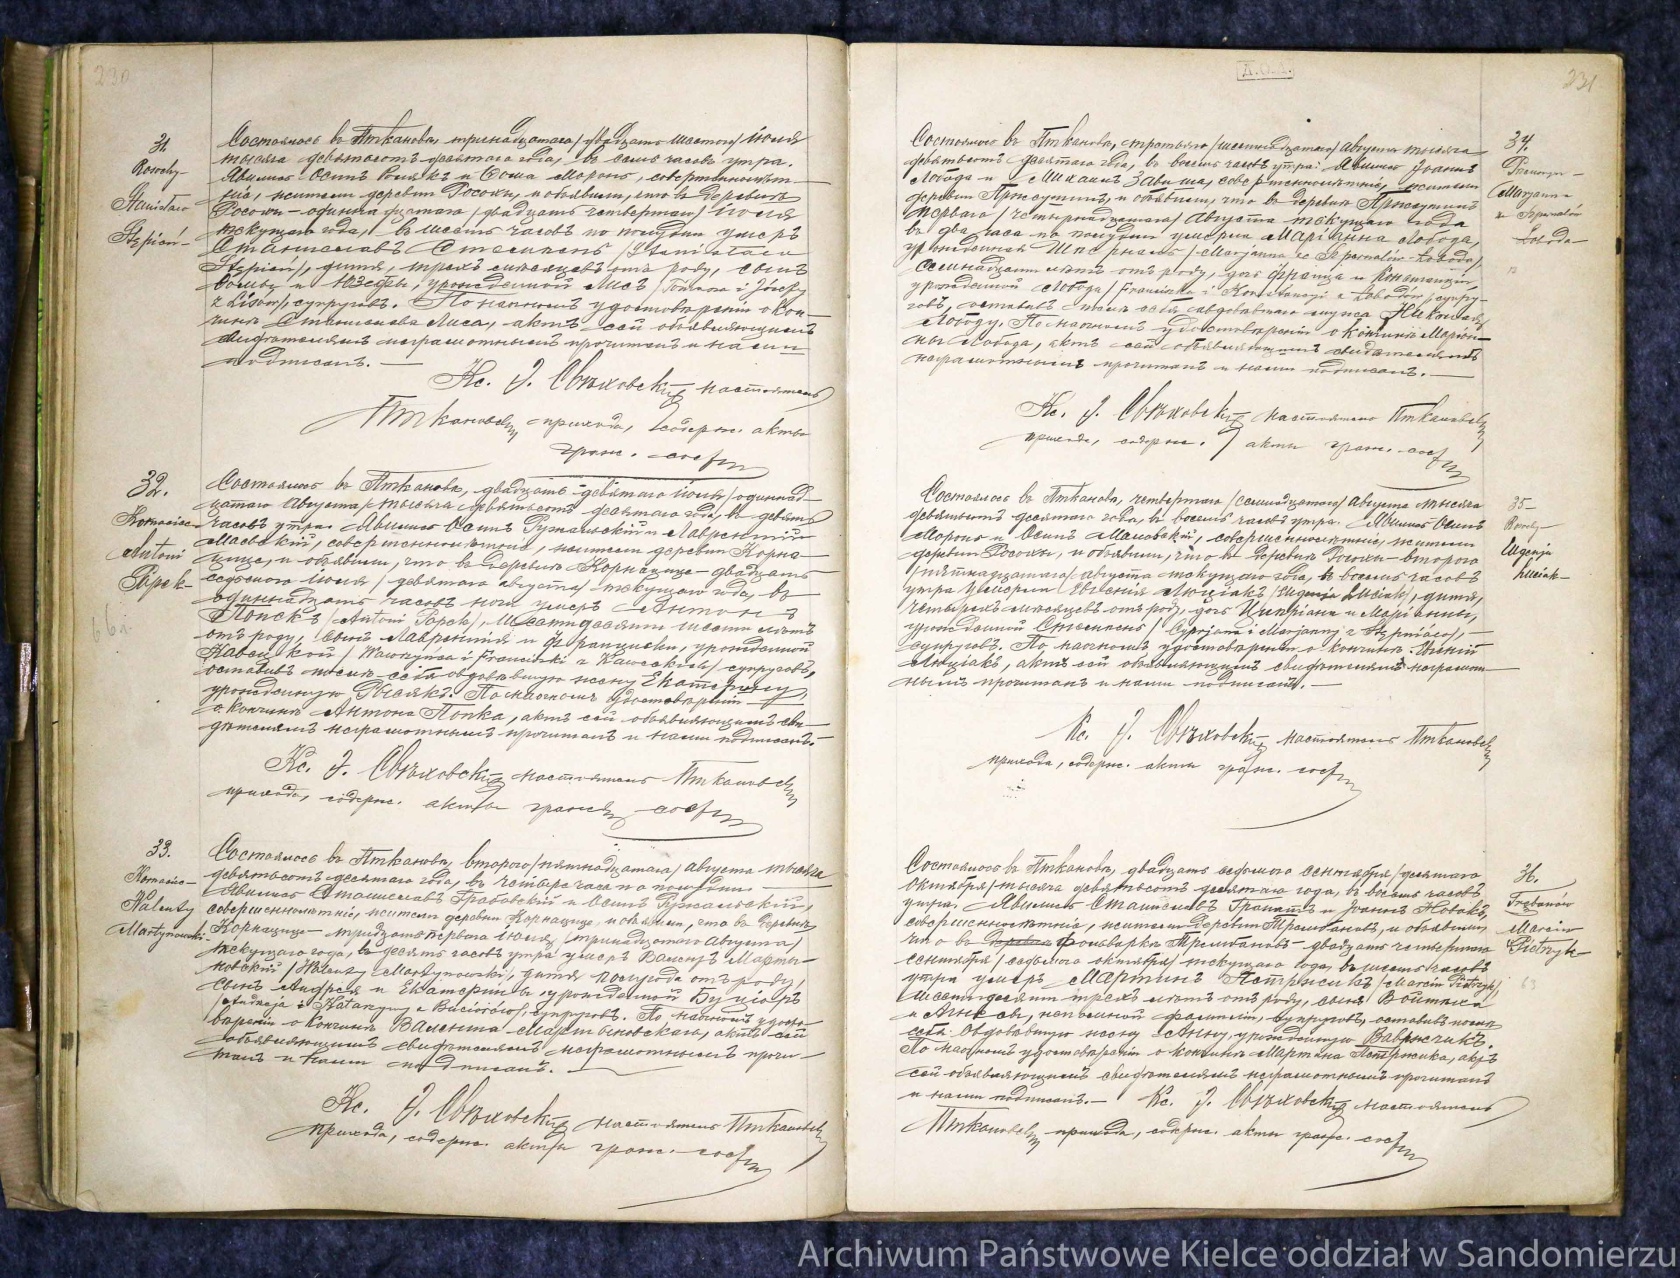 230
31.
Rososzy
Stanisław
Stępień
Состоялось въ Пткановѣ, тринадцатаго /двадцать шестого/ Іюля
тысяча девятьсотъ десятаго года, въ семь часовъ утра.
Явились Осипъ и Ѳома Моронь, совершеннолѣт-
ніе, жители деревни Рососки, и объявили, что въ деревнѣ
Рососки одиннадцатаго /двадцать четвертаго/ Іюля
текущаго года, въ шесть часовъ по полудни умеръ
Станиславъ Стемпень /Stanisław
Stępień/, дитя, трехъ мѣсяцевъ отъ роду, сынъ
Ѳомы и Юзефы, урожденной Лисъ /Tomasza i Józefy
z Lisów/, супруговъ. По настоящемъ удостовѣреніи о кон-
чинѣ Станислава, актъ сей объявляющимъ
свидѣтелямъ неграмотнымъ прочитанъ и нами
подписанъ.
Кс. J. Свѣховскій настоятель
Пткановскій прихода, содерж. акты
гражд. сост.
32.
Antoni
Popek
Состоялось въ Пткановѣ, двадцать девятаго Іюля /одиннад-
цатаго Августа/ тысяча девятьсотъ десятаго года, въ девять
часовъ утра. Явились Осипъ и Лаврентій
Маевскій, совершеннолѣтніе, жители деревни Корна-
цице, и объявили, что въ деревнѣ Корнацице двадцать
седьмого Іюля /девятаго августа/ текущаго года, въ
одиннадцать часовъ ночи умеръ Антоній
Попекъ /Antoni Popek/, шестидесяти шести лѣтъ
отъ роду, сынъ Лаврентія и Францишки, урожденной
/Wawrzyńca i Franciszki z/ супруговъ,
оставивъ послѣ себя овдовѣвшую жену Екатерину
урожденную. По настоящемъ удостовѣреніи
о кончинѣ Антона Попка, актъ сей объявляющимъ сви-
дѣтелямъ неграмотнымъ прочитанъ и нами подписанъ.
Кс. J. Свѣховскій настоятель Пткановскій
прихода, содерж. акты гражд. сост.
33.
Walenty
Martynowski
Состоялось въ Пткановѣ, второго /пятнадцатаго/ августа тысяча
девятьсотъ десятаго года, въ четыре часа по полудни.
Явились Станиславъ Грабовскій и Осипъ
совершеннолѣтніе, жители деревни Корнацице, и объявили, что въ деревнѣ
Корнацице тридцать перваго Іюля /тринадцатаго Августа/
текущаго года, въ десять часовъ утра умеръ Валентъ Марты-
новскій /Walenty Martynowski/, дитя полугода отъ роду,
сынъ Андрея и Екатерины, урожденной Буціоръ
/Andrzeja i Katarzyny z Buciorów/, супруговъ. По настоящемъ удосто-
вѣреніи о кончинѣ Валентія Мартыновскаго, актъ сей
объявляющимъ свидѣтелямъ неграмотнымъ прочи-
танъ и нами подписанъ.
Кс. J. Свѣховскій настоятель Пткановскій
прихода, содерж. акты гражд. сост.
231
34.
Marjanna
Łoboda
Состоялось въ Пткановѣ, третьяго /шестнадцатаго/ Августа тысяча
девятьсотъ десятаго года, въ восемь часовъ утра. Явились Іоаннъ
Лобода и Михаилъ Завиша, совершеннолѣтніе, жители
деревни, и объявили, что въ деревнѣ
перваго /четырнадцатаго/ Августа текущаго года
въ два часа по полудни умерла Маріанна Лобода,
урожденная /Marjanna Łoboda/
семнадцати лѣтъ отъ роду, дочь Франца и Констанціи,
урожденной Лобода /Franciszka i Konstancyi z Łobodów/, супру-
говъ, оставивъ послѣ себя овдовѣвшаго мужа Николая
Лободу. По настоящемъ удостовѣреніи о кончинѣ Маріан-
ны Лобода, актъ сей объявляющимъ свидѣтелямъ
неграмотнымъ прочитанъ и нами подписанъ.
Кс. J. Свѣховскій настоятель Пткановскій
прихода, содерж. акты гражд. сост.
35
Eugenja
Łuciak
Состоялось въ Пткановѣ, четвертаго /семнадцатаго/ Августа тысяча
девятьсотъ десятаго года, въ восемь часовъ утра. Явились Осипъ
Моронь и Осипъ, совершеннолѣтніе, жители
деревни Рососки, и объявили, что въ деревнѣ Рососки второго
/пятнадцатаго/ августа текущаго года, въ восемь часовъ
утра умерла Евгенія Люціакъ, дитя,
четырехъ мѣсяцевъ отъ роду, дочь Ципріана и Маріанны,
урожденной Стемпень /Cyprjana i Marjanny z Stępniów/,
супруговъ. По настоящемъ удостовѣреніи о кончинѣ Евгеніи
Люціакъ, актъ сей объявляющимъ свидѣтелямъ неграмот-
нымъ прочитанъ и нами подписанъ.
Кс. J. Свѣховскій настоятель Пткановскій
прихода, содерж. акты гражд. сост.
36.
Marcin
Pietrzyk
Состоялось въ Пткановѣ, двадцать седьмого сентября /десятаго
октября/ тысяча девятьсотъ десятаго года, въ восемь часовъ
утра. Явились Станиславъ и Іоаннъ Новакъ,
совершеннолѣтніе, жители деревни, и объявили
что въ фольваркѣ двадцать четвертаго
сентября /седьмого октября/ текущаго года, въ шесть часовъ
утра умеръ Мартинъ Петржикъ /Marcin Pietrzyk/,
шестидесяти трехъ лѣтъ отъ роду, сынъ Войтеха
и Агнесы, супруговъ, оставивъ послѣ
себя овдовѣвшую жену Анну, урожденную
По настоящемъ удостовѣреніи о кончинѣ Мартина Петржика, актъ
сей объявляющимъ свидѣтелямъ неграмотнымъ прочитанъ
и нами подписанъ. Кс. J. Свѣховскій настоятель
Пткановскій прихода, содерж. акты гражд. сост.
Archiwum Państwowe Kielce oddział w Sandomierzu